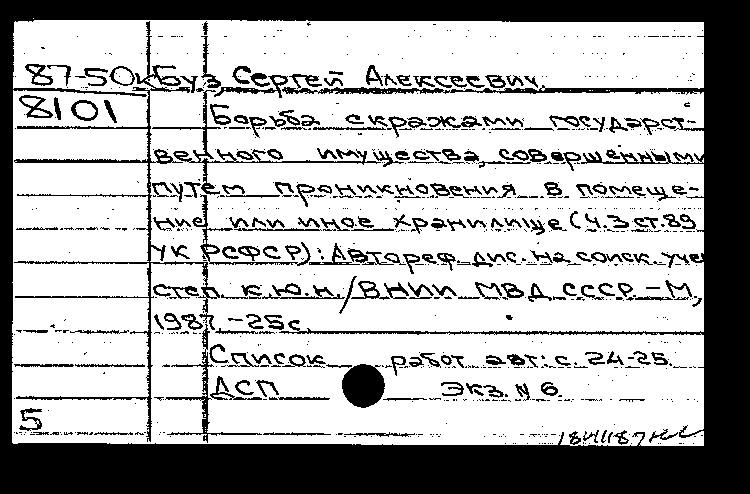 87-50к Буз, Сергей Алексеевич.
8101
Борьба с кражами государст-
венного имущества, совершенными
путем проникновения в помеще-
ние или иное хранилище (ч.3 ст.89
УК РСФСР): Автореф. дис. на соиск. учен
степ. к.ю.н./ВНИИ МВД СССР.-М,
1987.-25с.
Список работ авт: с. 24-25.
ДСП Экз. N 6.
5